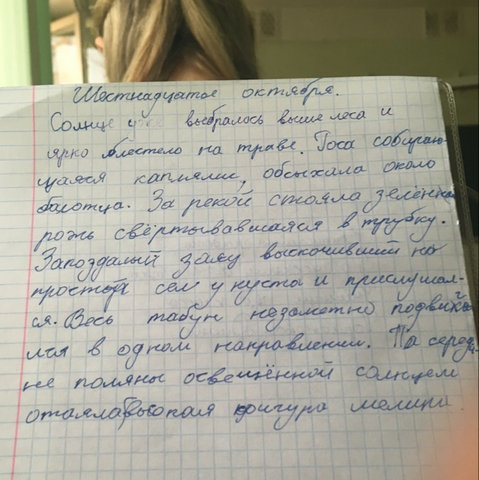 Шестнадцатое октября.
Солнце уже выбралось выше леса и
ярко блестело на траве. Роса собираю-
щаяся каплями, обсыхала около
болотца. За рекой стояла зелёная
рожь свёртывавшаяся в трубку.
Запоздалый заяц выскочивший на
простор сел у куста и прислушал-
ся. Весь табун незаметно подвин
лся в одном направлении. По середи-
не поляны освещённой солнцем
стояла высокая фигура мелина.